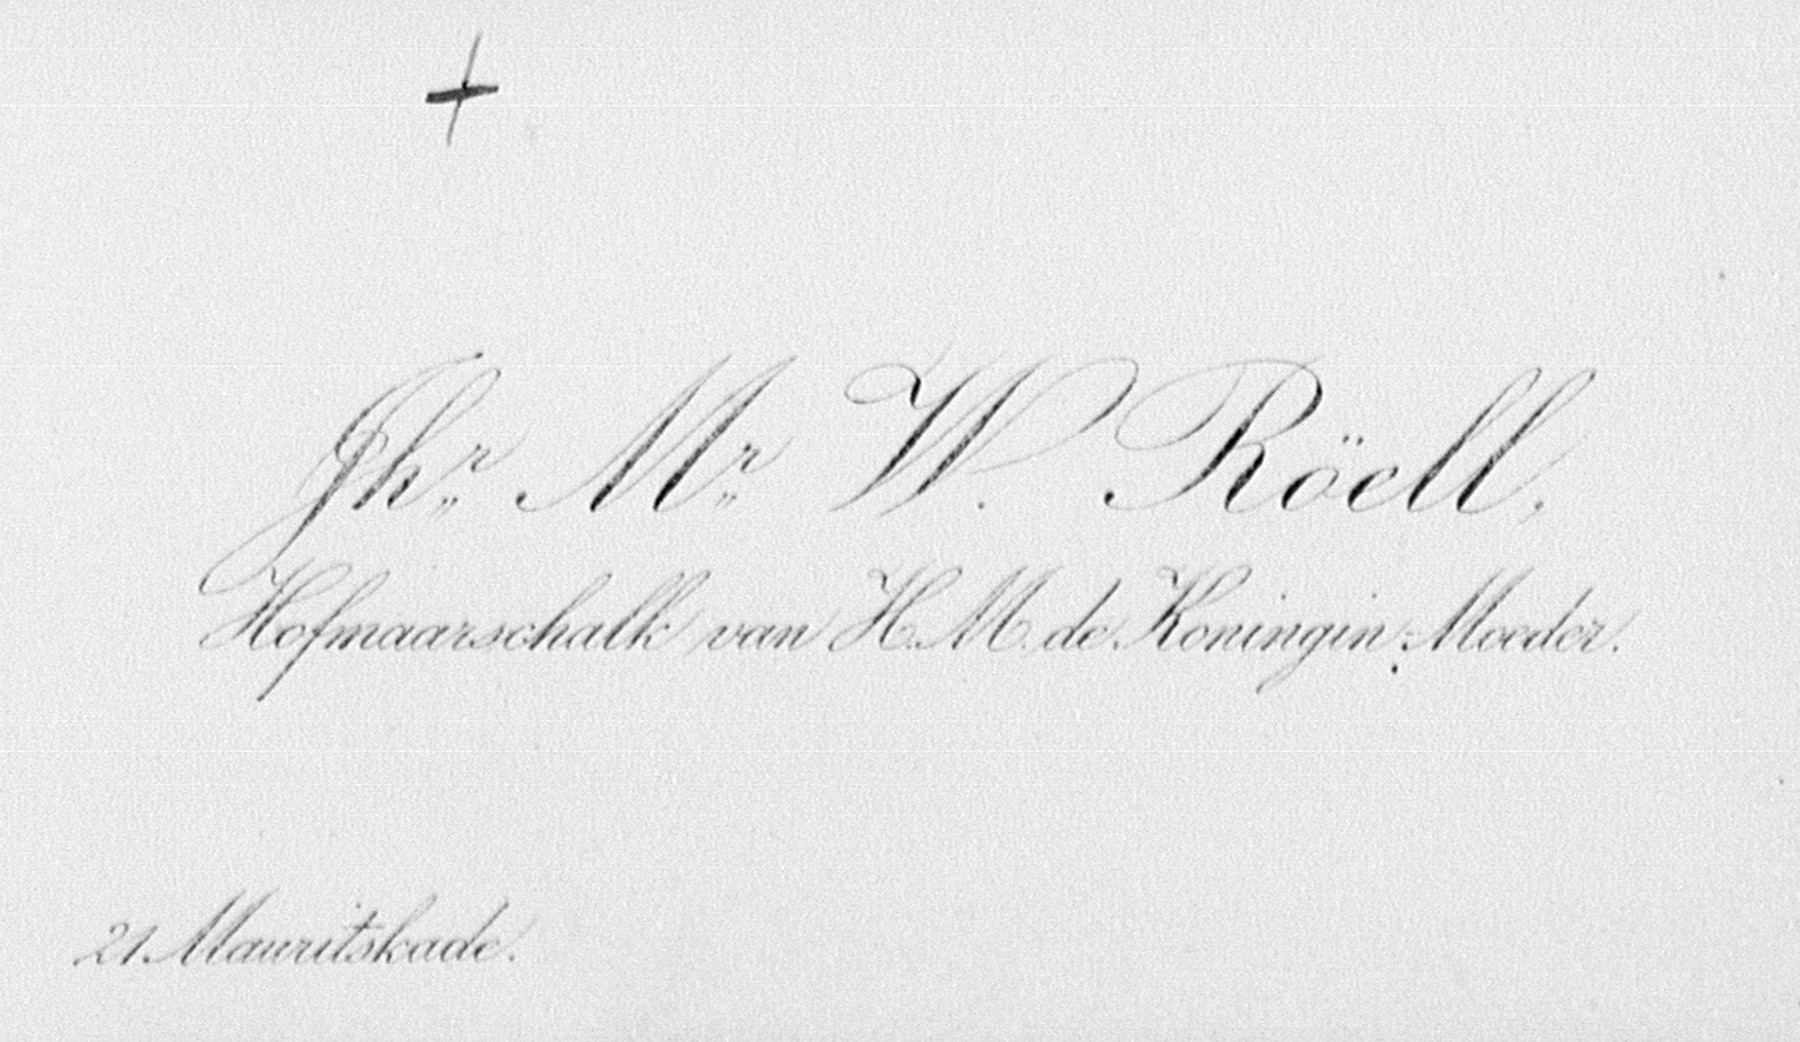 Jhr. Mr. W. Röell,
Hofmaarschalk van H.M. de Koningin-Moeder.
21 Mauritskade.